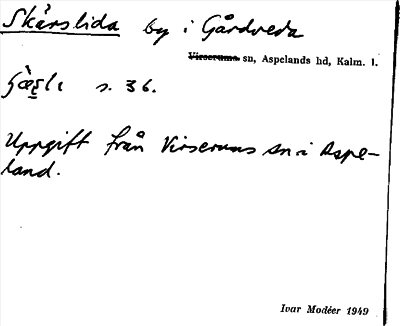 Skärslida by i Gårdveda
Virserums sn, Aspelands hd, Kalm. l.
s. 36.
Uppgift från Virserums sn i Aspe-
land.
Ivar Modéer 1949